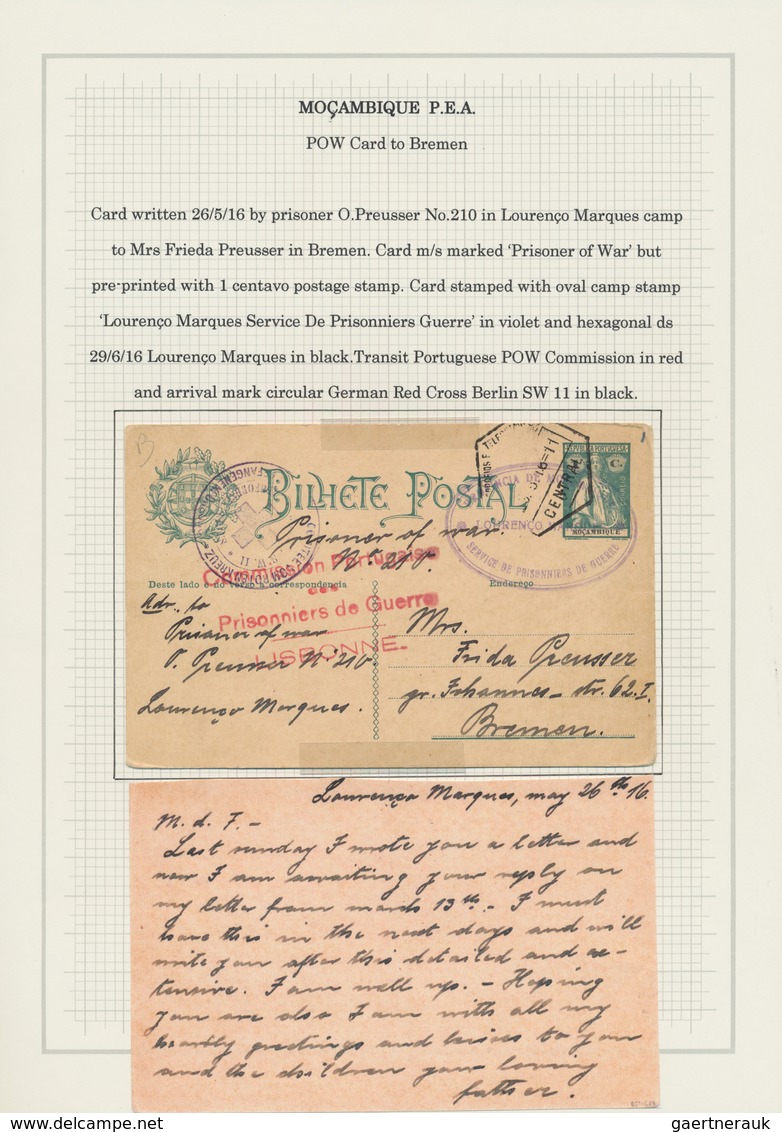 MOÇAMBIQUE P.E.A.
POW Card to Bremen
Card written 26/5/16 by prisoner O.Preusser No.210 in Lourenço Marques camp
to Mrs Frieda Preusser in Bremen. Card m/s marked ‘Prisoner of War’ but
pre-printed with 1 centavo postage stamp. Card stamped with oval camp stamp
‘Lourenço Marques Service De Prisonniers Guerre’ in violet and hexagonal ds
29/6/16 Lourenço Marques in black.Transit Portuguese POW Commission in red
and arrival mark circular German Red Cross Berlin SW 11 in black.
B
1
REPUBLICA PORTUGUESA
C.
CORREIO
MOÇAMBIQUE
CENTRAL
BILHETE POSTAL
LOURENÇO
SERVICE DE PRISONNIERS DE GUERRE
S.W. 11
Prisoner of war
No. 210.
Commission Portugaise
des
Prisonniers de Guerre
LISBONNE
Deste lado e no verso correspondencia
Endereço
Adr. to
Prisoner of war
O. Preusser No 210
Lourenço Marques.
Mrs.
Frida Preusser
gr. Johannes-str. 62.I.
Bremen.
Lourenço Marques, may 26th 16.
M. d. F. –
Last sunday I wrote you a letter and
now I am awaiting your reply on
my letter from march 13th – I must
have this in the next days and will
write you after this detailed and ex-
tensive. I am well up. – Hoping
you are also I am with all my
heartly greetings and kisses to you
and the children your loving
father.
gaertnerauk